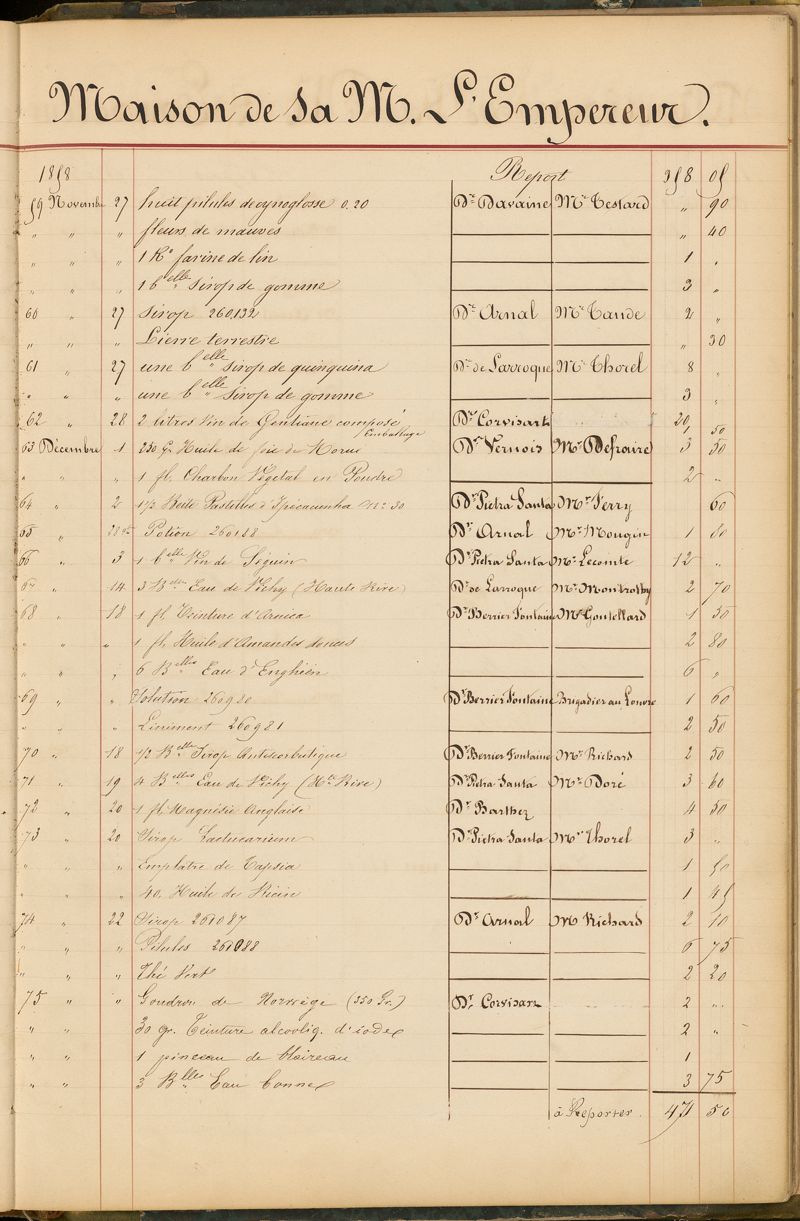 Maison de Sa M. L'Empereur.
1858 Report 358 05
59 Novembre 27 huit pilules de cynoglosse 0.20 Dr. Davaine Mr. Testard " 90
" " " fleurs de mauves " 40
" " " 1 Ko farine de lin 1 "
" " " 1 belle Sirop de gomme 3 "
60 " 27 Sirop 260,132 Dr. Arnal Mr. Tande 2 "
" " " Lierre terrestre " 30
61 " 27 une belle Sirop de quinquina Dr. de Larroque Mr. Thorel 8 "
" " " une belle Sirop de gomme 3 "
62 " 28 2 litres Vin de Gentiane composé Dr. Corvisart 20
Emballage 1 50
63 Décembre 1 250 Gr. Huile de foie de Morue Dr. Vernois Mr. Defraire 3 50
" " " 1 fl. Charbon Végétal en Poudre 2 "
64 " 2 1/2 Boite Pastilles d'Ipécacuanha No. 30 Dr. Pietra Santa Mr. Ferry 60
65 " Potion 260188 Dr. Arnal Mr. Mougin 1 80
66 " 3 1 belle Vin de Séguin Dr. Pietra Santa Mr. Lecomte 12 "
67 " 14 3 Belles Eau de Vichy (Haute Rive) Dr. de Larroque Mr. Montrolhy 2 70
68 " 18 1 fl. Teinture d'Arnica Dr. Berrier Fontaine Mr. Gontellard 1 50
" " " 1 fl. Huile d'Amandes douces 2 80
" " " 6 Belles Eau d'Enghien 6 "
69 " " Solution 260980 Dr. Berrier Fontaine Brigadier au Louvre 1 60
" " " Liniment 260981 2 50
70 " 18 1/2 Belle Sirop Antiscorbutique Dr. Berrier Fontaine Mr. Richard 2 50
71 " 19 4 Belles Eau de Vichy (Hte. Rive) Dr. Pietra Santa Mr. Doré 3 60
72 " 20 1 fl. Magnésie Anglaise Dr. Barthez 4 50
73 " 20 Sirop Lactucarium Dr. Pietra Santa Mr. Thorel 3 "
" " " Emplâtre de Tapsia 1 50
" " " 40. Huile de Ricin 1 45
74 " 22 Sirop 261087 Dr. Arnal Mr. Richard 2 10
" " " Pilules 261088 6 75
" " " Thé Vert 2 20
75 " " Goudron de Norwège (350 Gr.) Dr. Corvisart 2 "
" " 30 gr. Teinture alcooliq. d'iode 2 "
" " 1 pinceau de blaireau 1
" " 3 Blles Eau Bonnes 3 75
à Reporter. 471 50